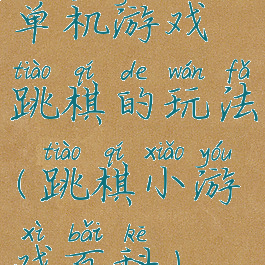 单机游戏
tiào qí de wán fǎ
跳棋的玩法
tiào qí xiǎo yóu
(跳棋小游
xì bǎi kē
戏百科)